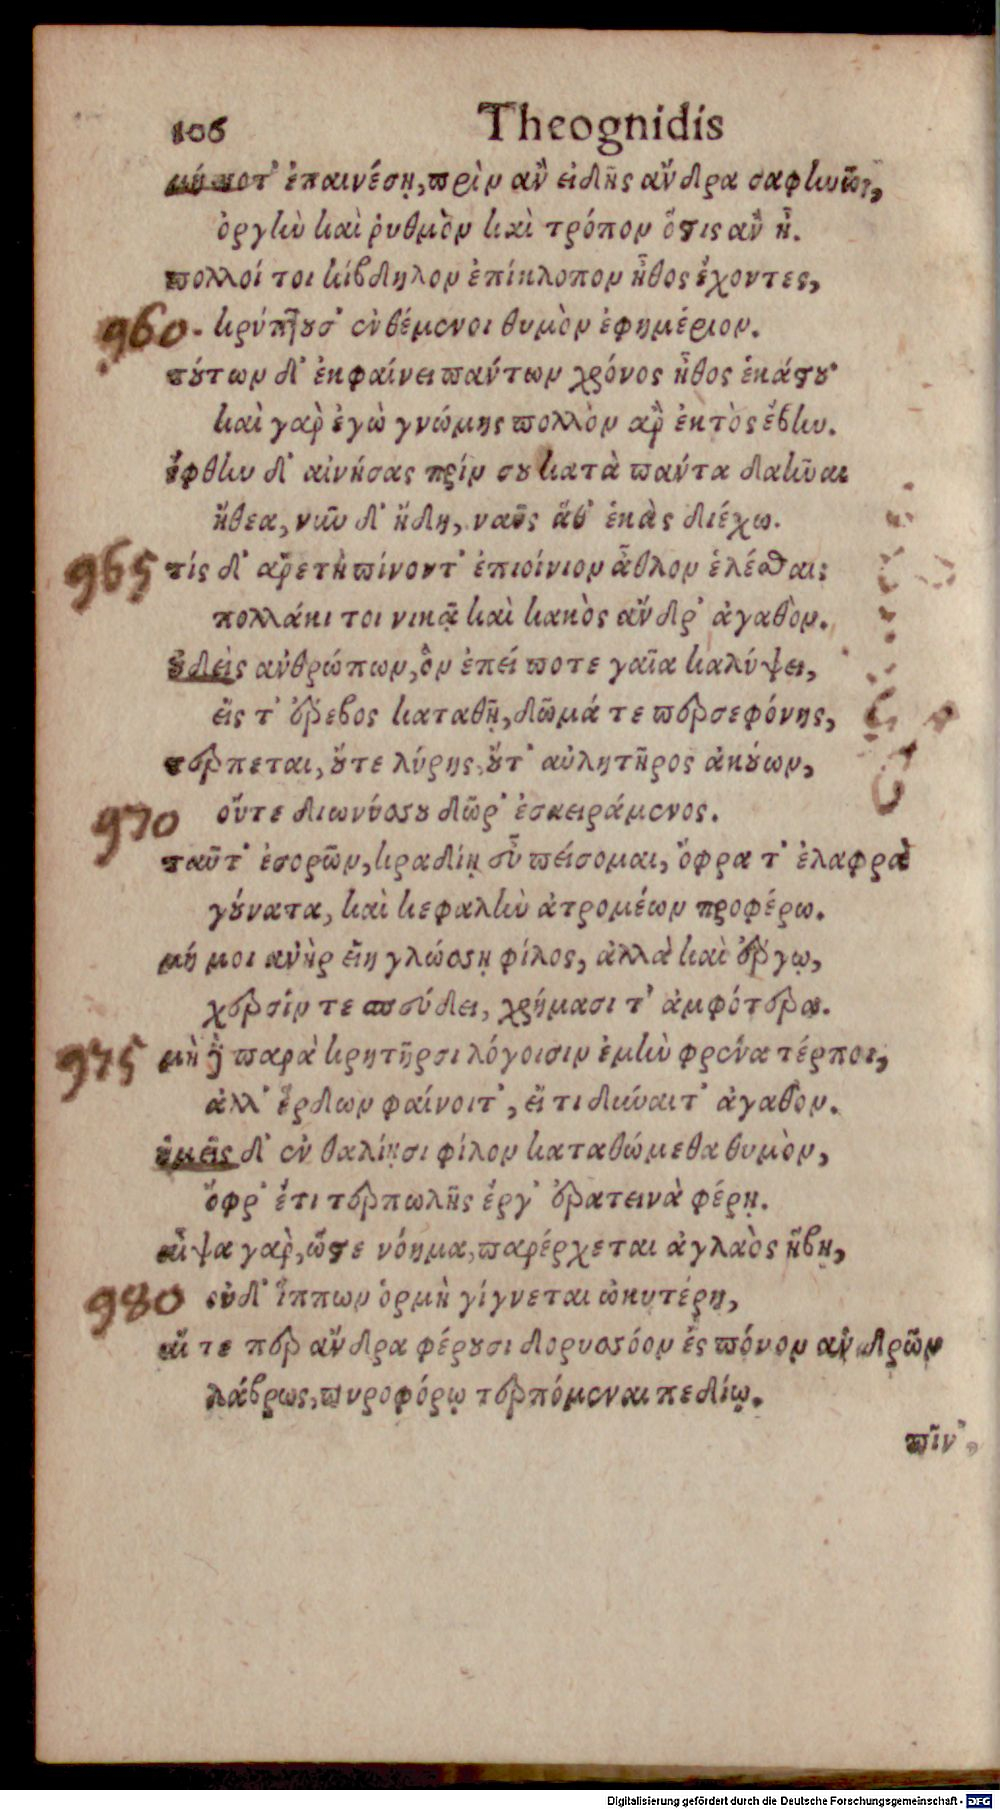 106 Theognidis
μήποτ᾽ ἐπαινέσῃ, πρὶν ἂν εἰδῇς ἄνδρα σαφηνῶς,
ὀργὴν καὶ ῥυθμὸν καὶ τρόπον ὅςτις ἂν ᾖ.
πολλοί τοι κίβδηλον ἐπίκλοπον ἦθος ἔχοντες,
960. κρύπτουσ᾽ ἐνθέμενοι θυμὸν ἐφημέριον.
τούτων δ᾽ ἐκφαίνει πάντων χρόνος ἦθος ἑκάστου·
καὶ γὰρ ἐγὼ γνώμης πολλὸν ἄρ᾽ ἐκτὸς ἔβην.
ἔφθην δ᾽ αἰνήσας πρίν σου κατὰ πάντα δαῆναι
ἤθεα, νῦν δ᾽ ἤδη, ναῦς ἅθ᾽ ἑκὰς διέχω.
965 τίς δ᾽ ἀρετὴ πίνοντ᾽ ἐπιοίνιον ἆθλον ἑλέσθαι;
πολλάκι τοι νικᾷ καὶ κακὸς ἄνδρ᾽ ἀγαθόν.
οὐδεὶς ἀνθρώπων, ὃν ἐπεί ποτε γαῖα καλύψει,
εἴς τ᾽ ἔρεβος καταβῇ, δῶμά τε περσεφόνης,
τέρπεται, οὔτε λύρης, οὔτ᾽ αὐλητῆρος ἀκούων,
970 οὔτε διωνύσου δῶρ᾽ ἐσαειράμενος.
ταῦτ᾽ ἐσορῶν, κραδίην εὖ πείσομαι, ὄφρα τ᾽ ἐλαφρὰ
γούνατα, καὶ κεφαλὴν ἀτρομέων προφέρω.
μή μοι ἀνὴρ εἴη γλώσσῃ φίλος, ἀλλὰ καὶ ἔργῳ,
χερσίν τε σπεύδει, χρήμασί τ᾽ ἀμφότερα.
975 μὴ δὲ παρὰ κρητῆρσι λόγοισιν ἐμὴν φρένα τέρποι,
ἀλλ᾽ ἔρδων φαίνοιτ᾽, εἴ τι δύναιτ᾽ ἀγαθόν.
ἡμεῖς δ᾽ ἐν θαλίῃσι φίλον καταθώμεθα θυμὸν,
ὄφρ᾽ ἔτι τερπωλῆς ἔργ᾽ ἐρατεινὰ φέρῃ.
αἶψα γὰρ, ὥστε νόημα, παρέρχεται ἀγλαὸς ἥβη,
980 οὐδ᾽ ἵππων ὁρμὴ γίγνεται ὠκυτέρη,
αἵ τε περ ἄνδρα φέρουσι δορυσσόον ἐς πόνον ἀνδρῶν
λάβρως, πυροφόρῳ τερπόμεναι πεδίῳ.
πῖν᾽,
Digitalisierung gefördert durch die Deutsche Forschungsgemeinschaft - DFG